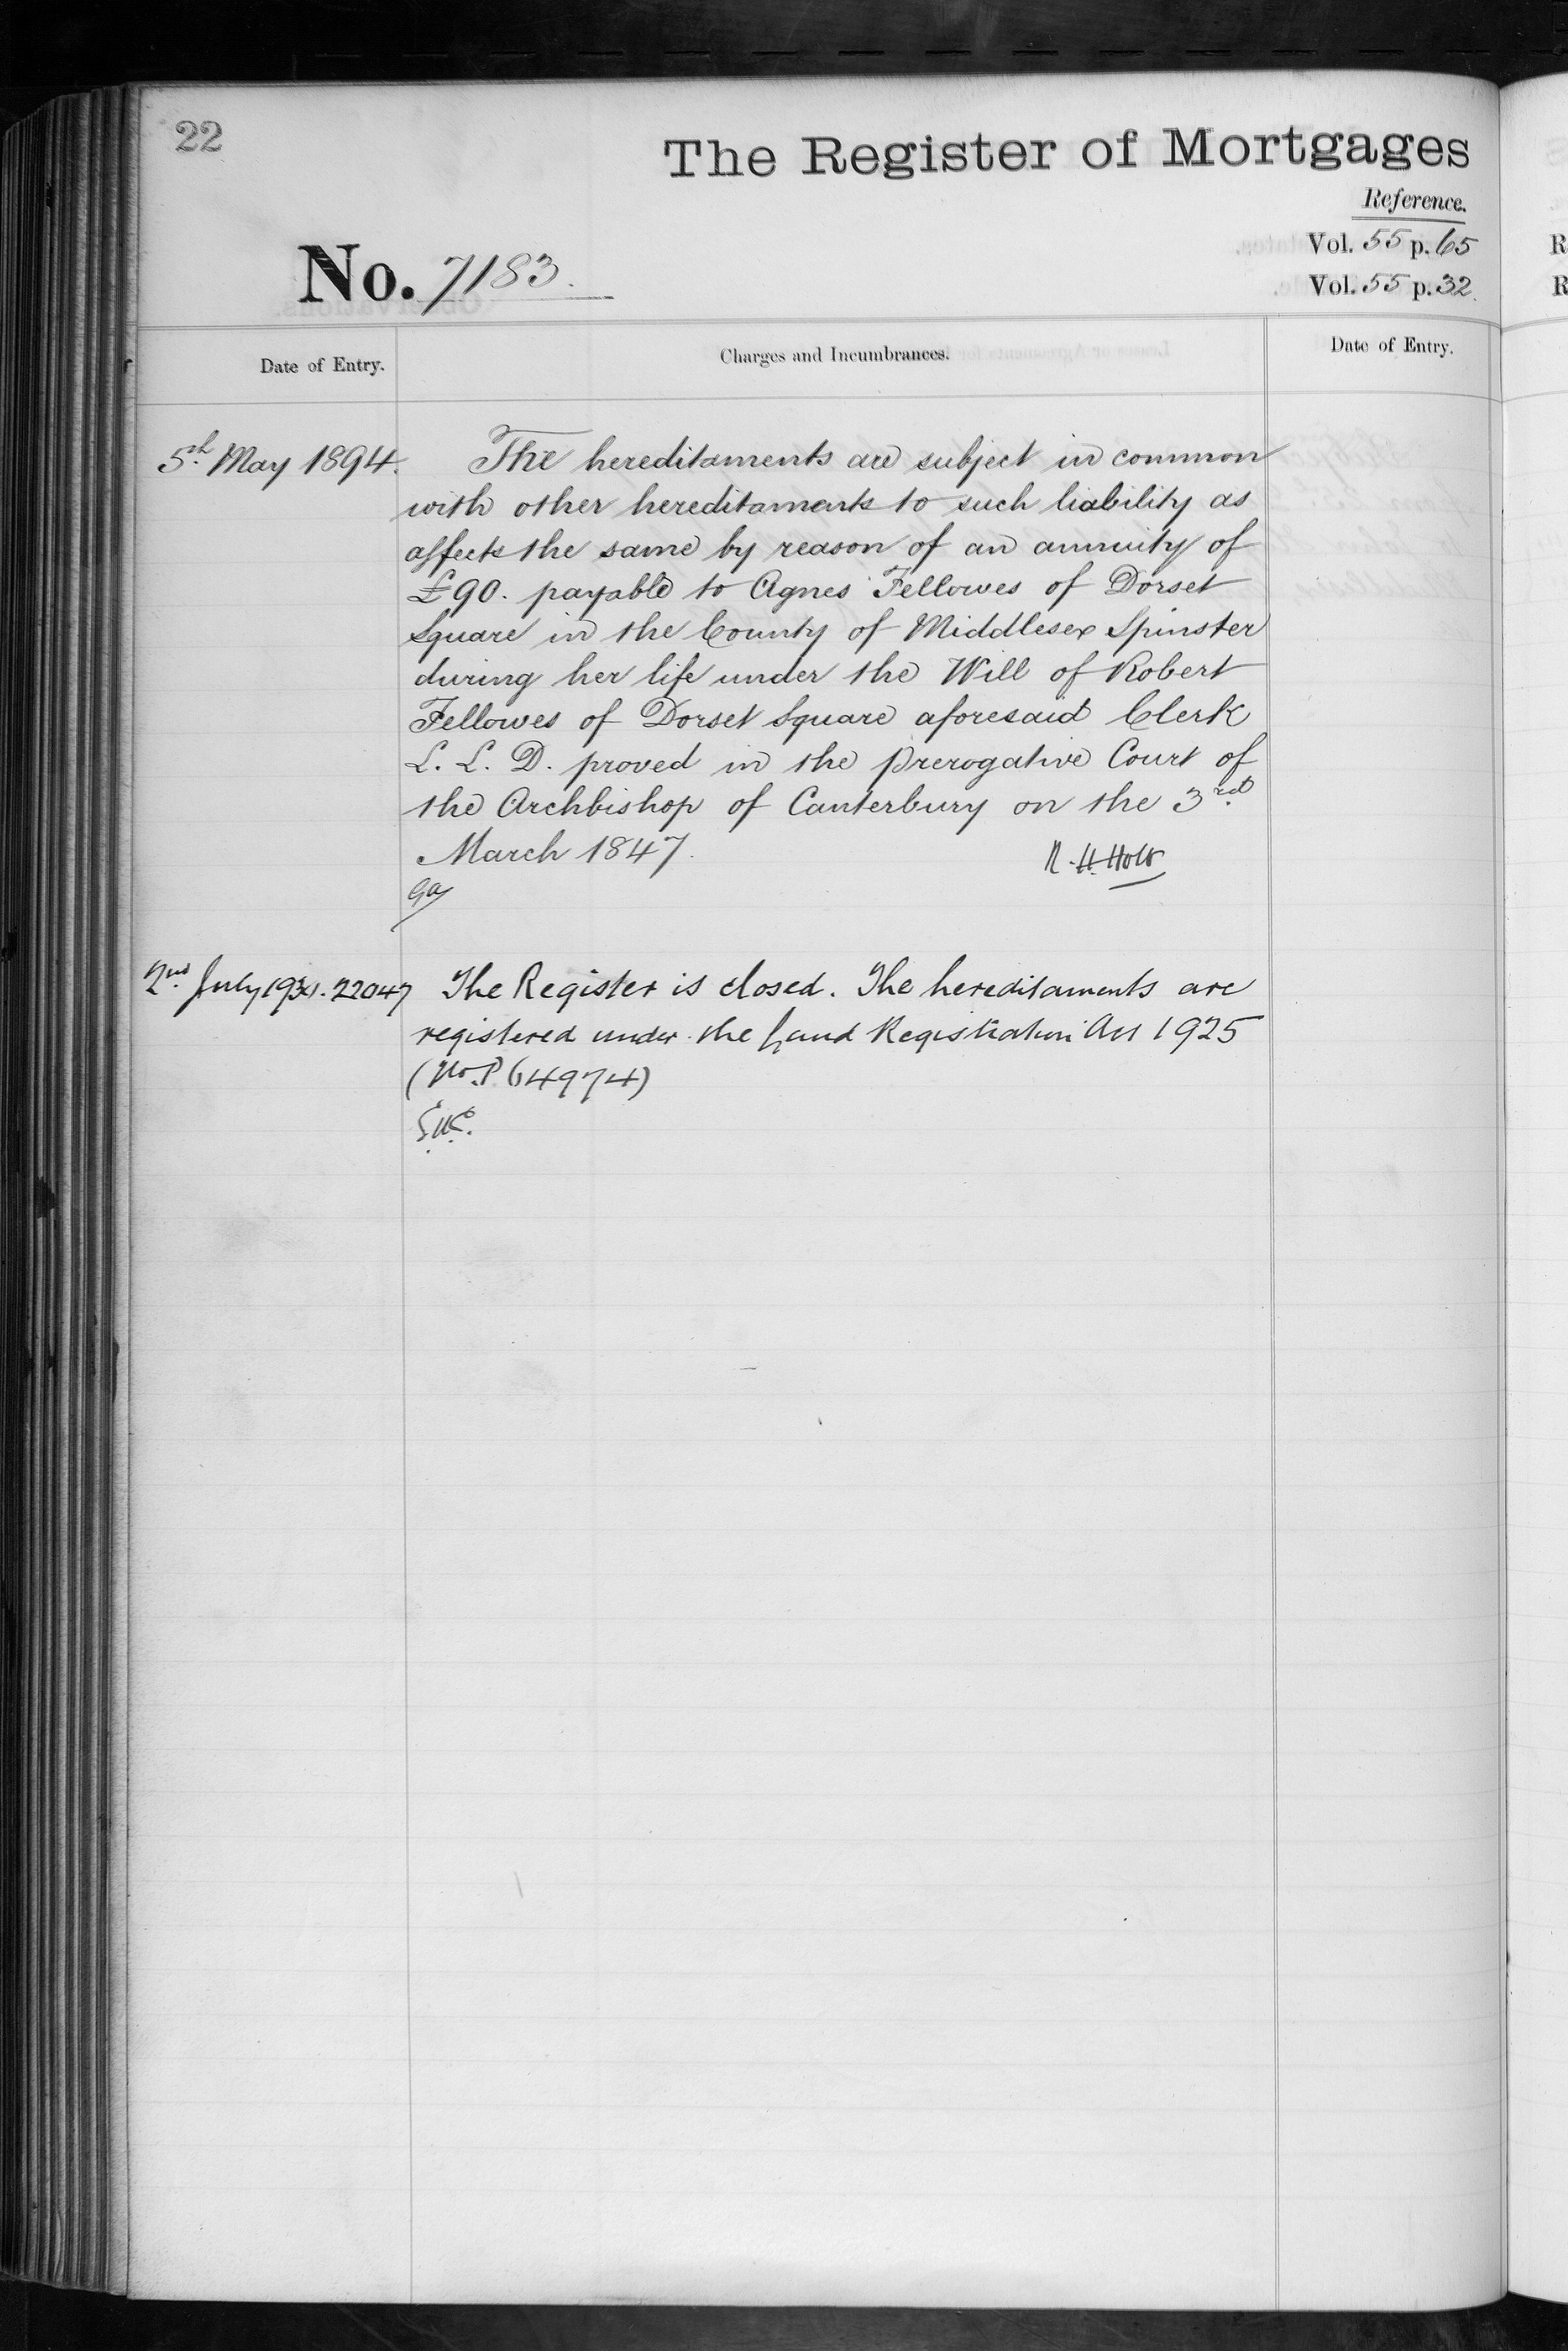 22
The Register of Mortgages
Reference.
Vol. 55 p. 65
No. 7183.
Vol. 55 p. 32.
Date of Entry.
Charges and Incumbrances.
Date of Entry.
5th May 1894.
The hereditaments are subject in common
with other hereditaments to such liability as
affects the same by reason of an annuity of
£90. payable to Agnes Fellowes of Dorset
Square in the County of Middlesex Spinster
during her life under the Will of Robert
Fellowes of Dorset Square aforesaid Clerk
L. L. D. proved in the Prerogative Court of
the Archbishop of Canterbury on the 3rd
March 1847.
R. H. Holt
2nd July 22047
The Register is closed. The hereditaments are
registered under the Land Registration Act 1925
(No. P. 64974)